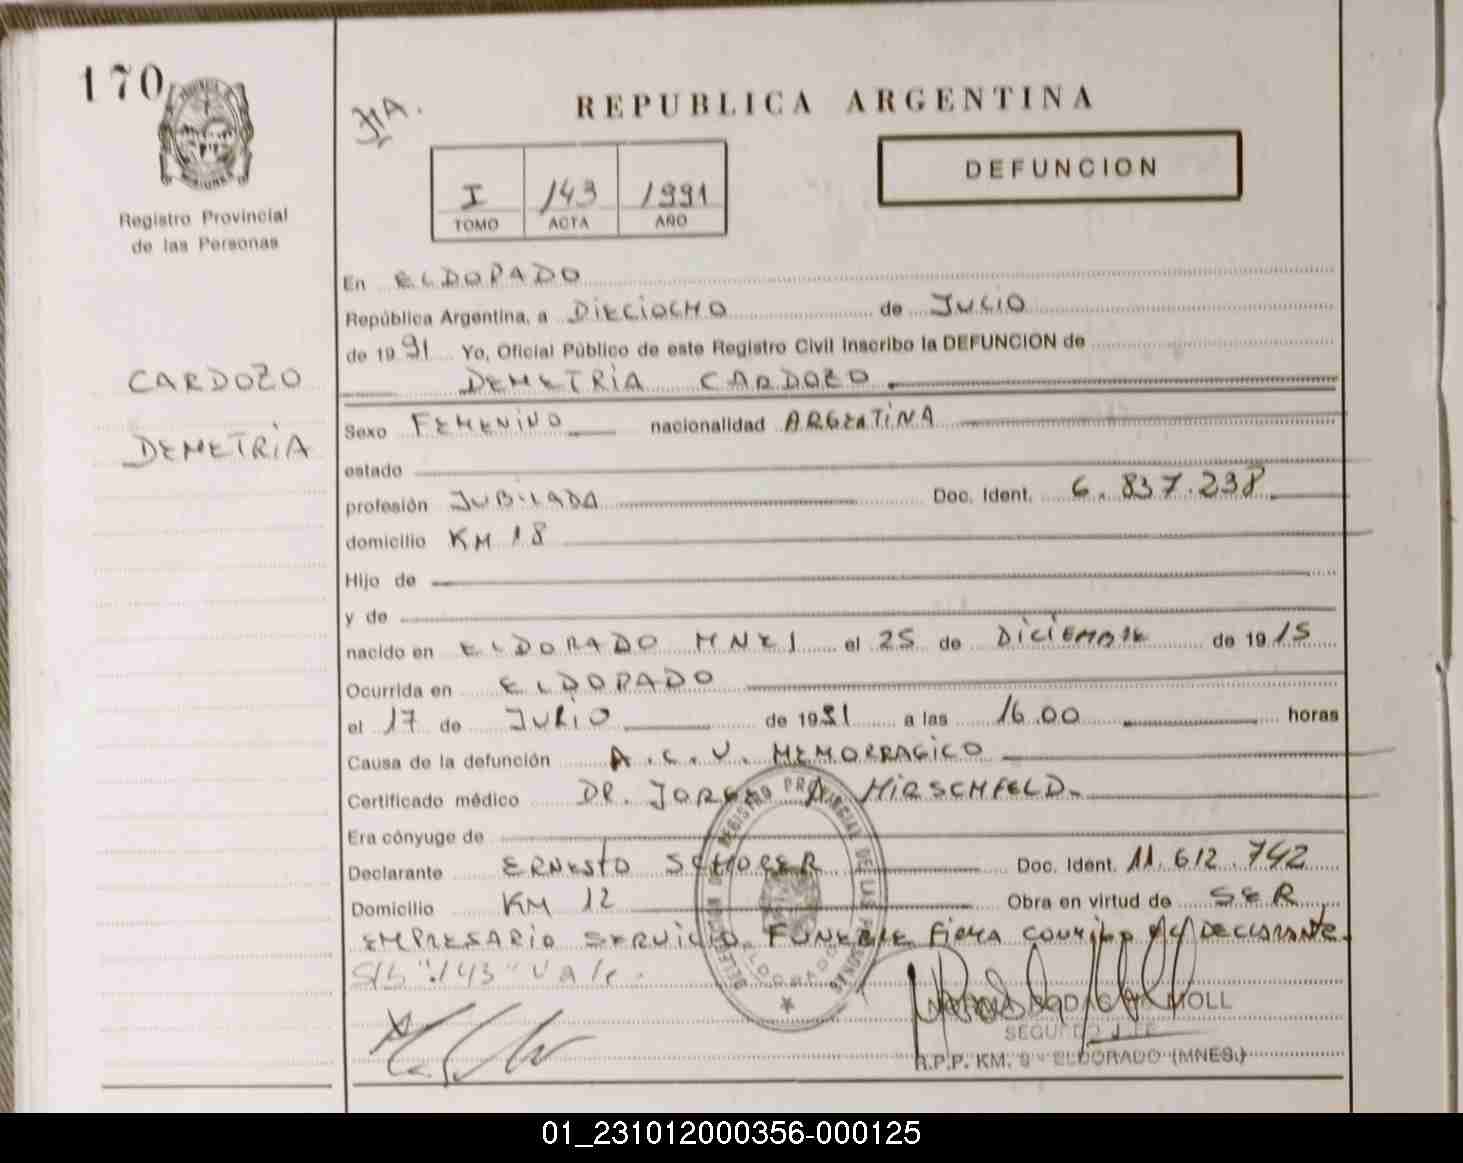 170
REPUBLICA ARGENTINA
DEFUNCION
I 143 1991
TOMO ACTA AÑO
Registro Provincial
de las Personas
CARDOZO
DEMETRIA
En ELDORADO
República Argentina, a DIECIOCHO de JULIO
de 1991 Yo, Oficial Público de este Registro Civil Inscribo la DEFUNCION de
DEMETRIA CARDOZO
Sexo FEMENINO nacionalidad ARGENTINA
estado
profesión JUBILADA Doc. Ident. 6.837.238
domicilio KM 18
Hijo de
y de
nacido en ELDORADO MNES el 25 de DICIEMBRE de 1915
Ocurrida en ELDORADO
el 17 de JULIO de 1991 a las 16.00 horas
Causa de la defunción A.C.V. HEMORRAGICO
Certificado médico DR. JORGE A HIRSCHFELD
Era cónyuge de
Declarante ERNESTO SCHORER Doc. Ident. 11.612.742
Domicilio KM 12 Obra en virtud de SER
EMPRESARIO SERVICIO FUNEBRE FIRMA CONMIGO DECLARANTE.
S/B "143" Vale.
DELEGACION DEL REGISTRO PROVINCIAL DE LAS PERSONAS
ELDORADO
MOLL
SEGUNDO JEFE
R.P.P. KM. 9 - ELDORADO (MNES.)
01_231012000356-000125